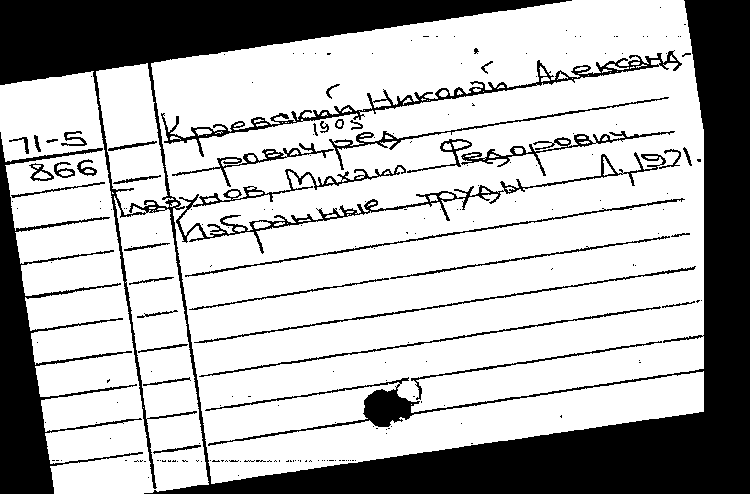 71-5
866
Краевский, Николай Александ-
1905
рович, ред
Глазунов, Михаил Федорович.
Избранные труды Л., 1971.